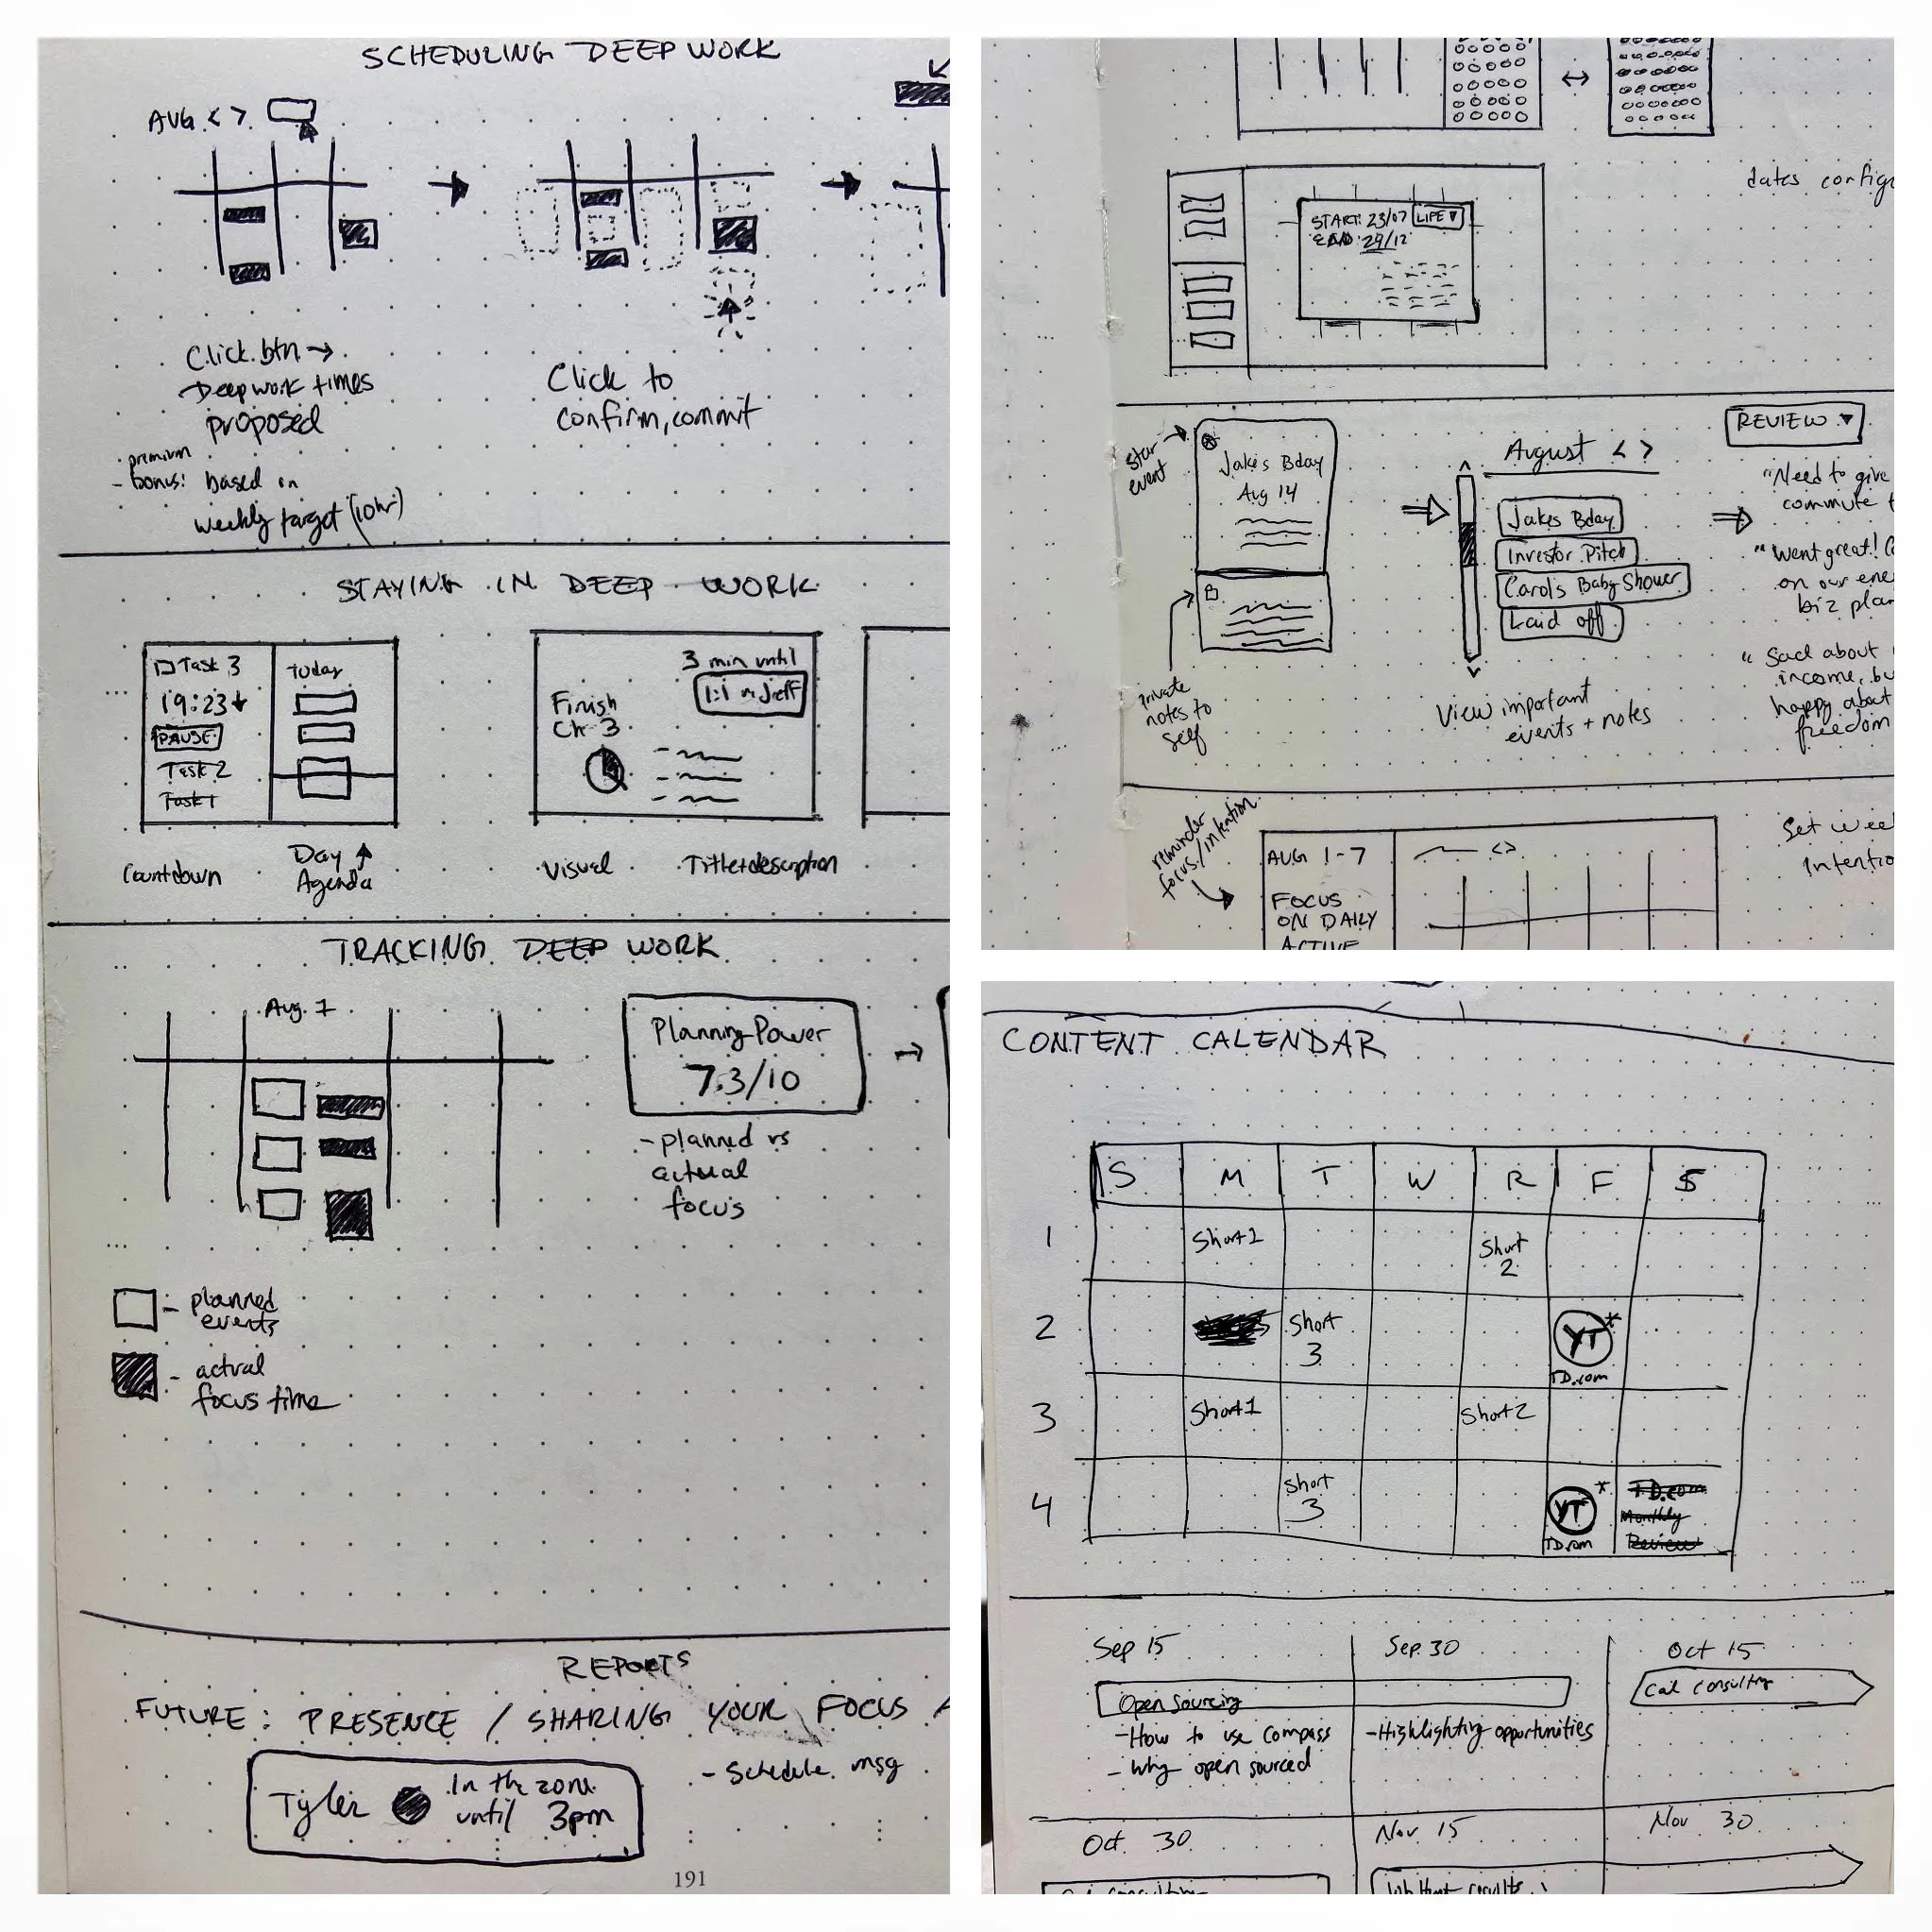 SCHEDULING DEEP WORK
AUG < >
Click btn →
Deep work times
proposed
premium
- bonus! based on
weekly target (10hr)
Click to
confirm, commit
STAYING IN DEEP WORK
Task 3
19:23
PAUSE
Task 2
Task 1
Today
3 min until
1:1 w Jeff
Finish
Ch 3
Countdown
Day
Agenda
Visual
Title+description
TRACKING DEEP WORK
Aug 1
Planning Power
7.3/10
- planned vs
actual
focus
- planned
events
- actual
focus time
REPORTS
FUTURE: PRESENCE / SHARING YOUR FOCUS
Tyler
In the zone
until 3pm
- Schedule msg
191
START: 23/07
LIFE ▼
END: 29/12
dates config
star
event
Jake's Bday
Aug 14
private
notes to
self
August < >
Jakes Bday
Investor Pitch
Carol's Baby Shower
Laid off
View important
events + notes
REVIEW ▼
"Need to give
commute
"Went great!
on our
biz plan
"Sad about
income, bu
happy about
freedom
reminder
focus/intention
AUG 1-7
< >
FOCUS
ON DAILY
ACTIVE
Set wee
Intentio
CONTENT CALENDAR
S M T W R F S
1
Short 1
Short
2
2
Short
3
YT*
TD.com
3
Short 1
Short 2
4
Short
3
YT*
TD.com
TD.com
Monthly
Review
Sep 15
Sep 30
Oct 15
Open sourcing
Cal consulting
- How to use Compass
- Why open sourced
- Highlighting opportunities
Oct 30
Nov 15
Nov 30